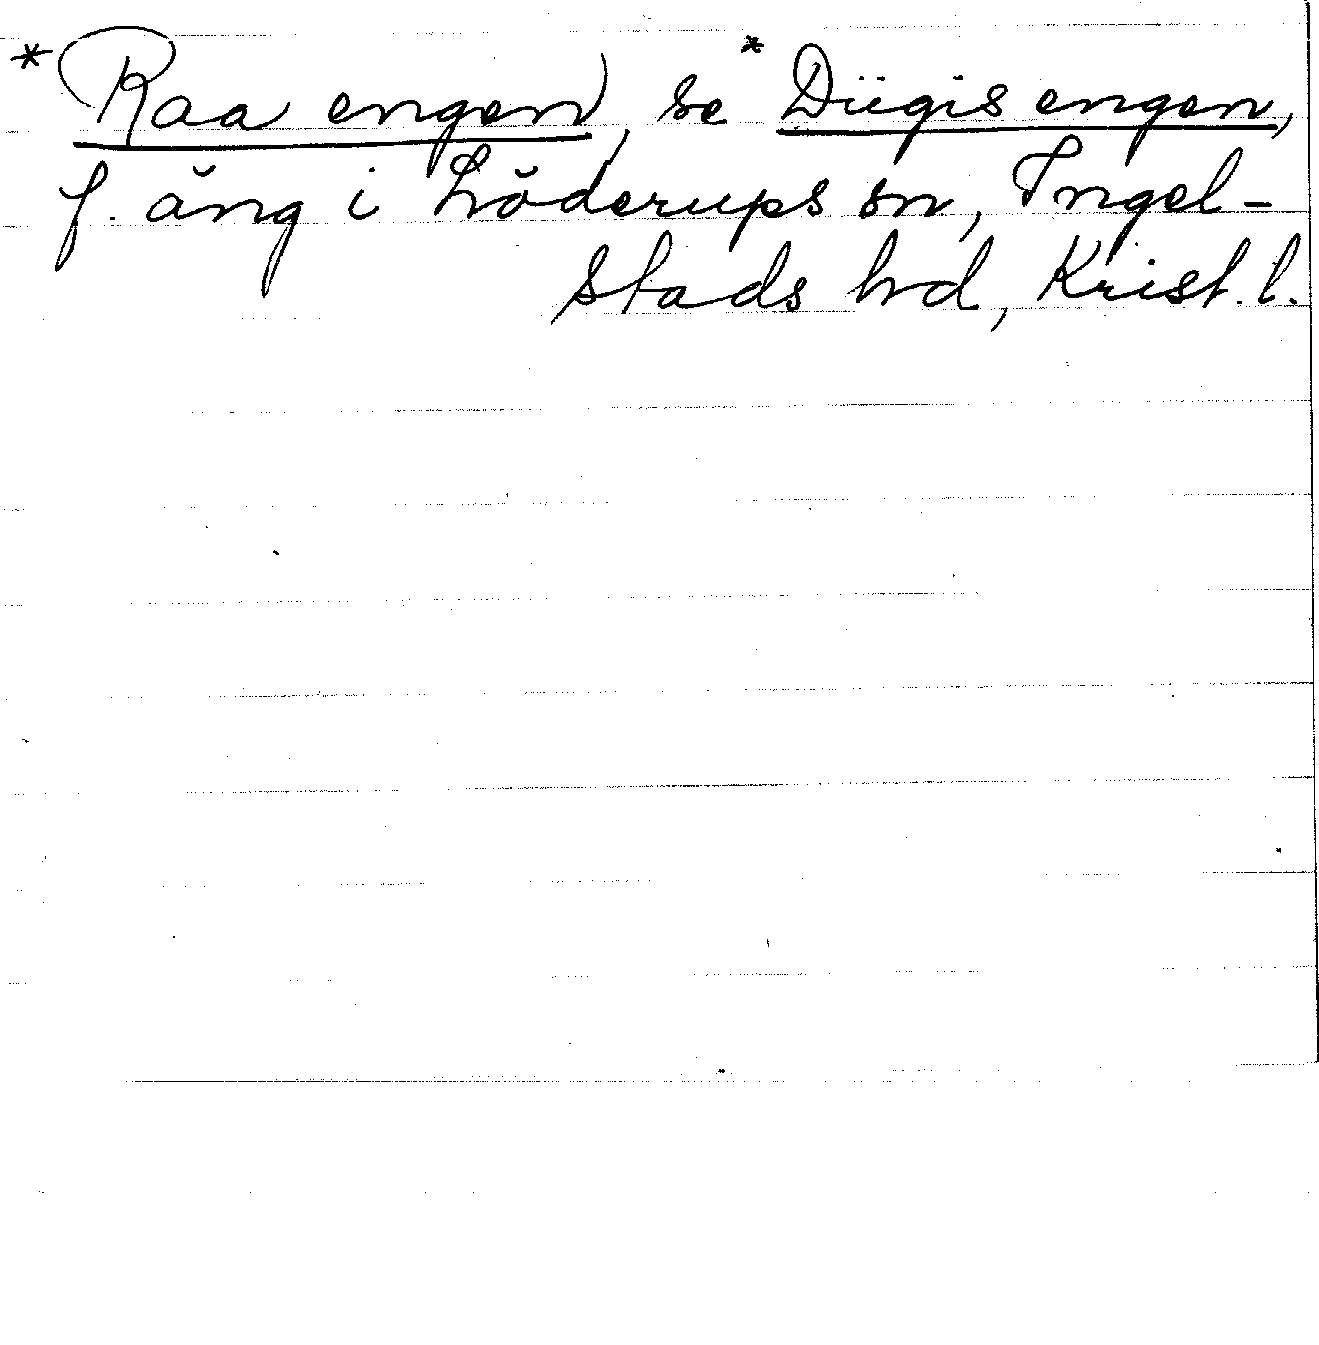 * Raa engen, se * Diigis engen,
f. äng i Löderups sn, Ingel-
stads hd, Krist. l.